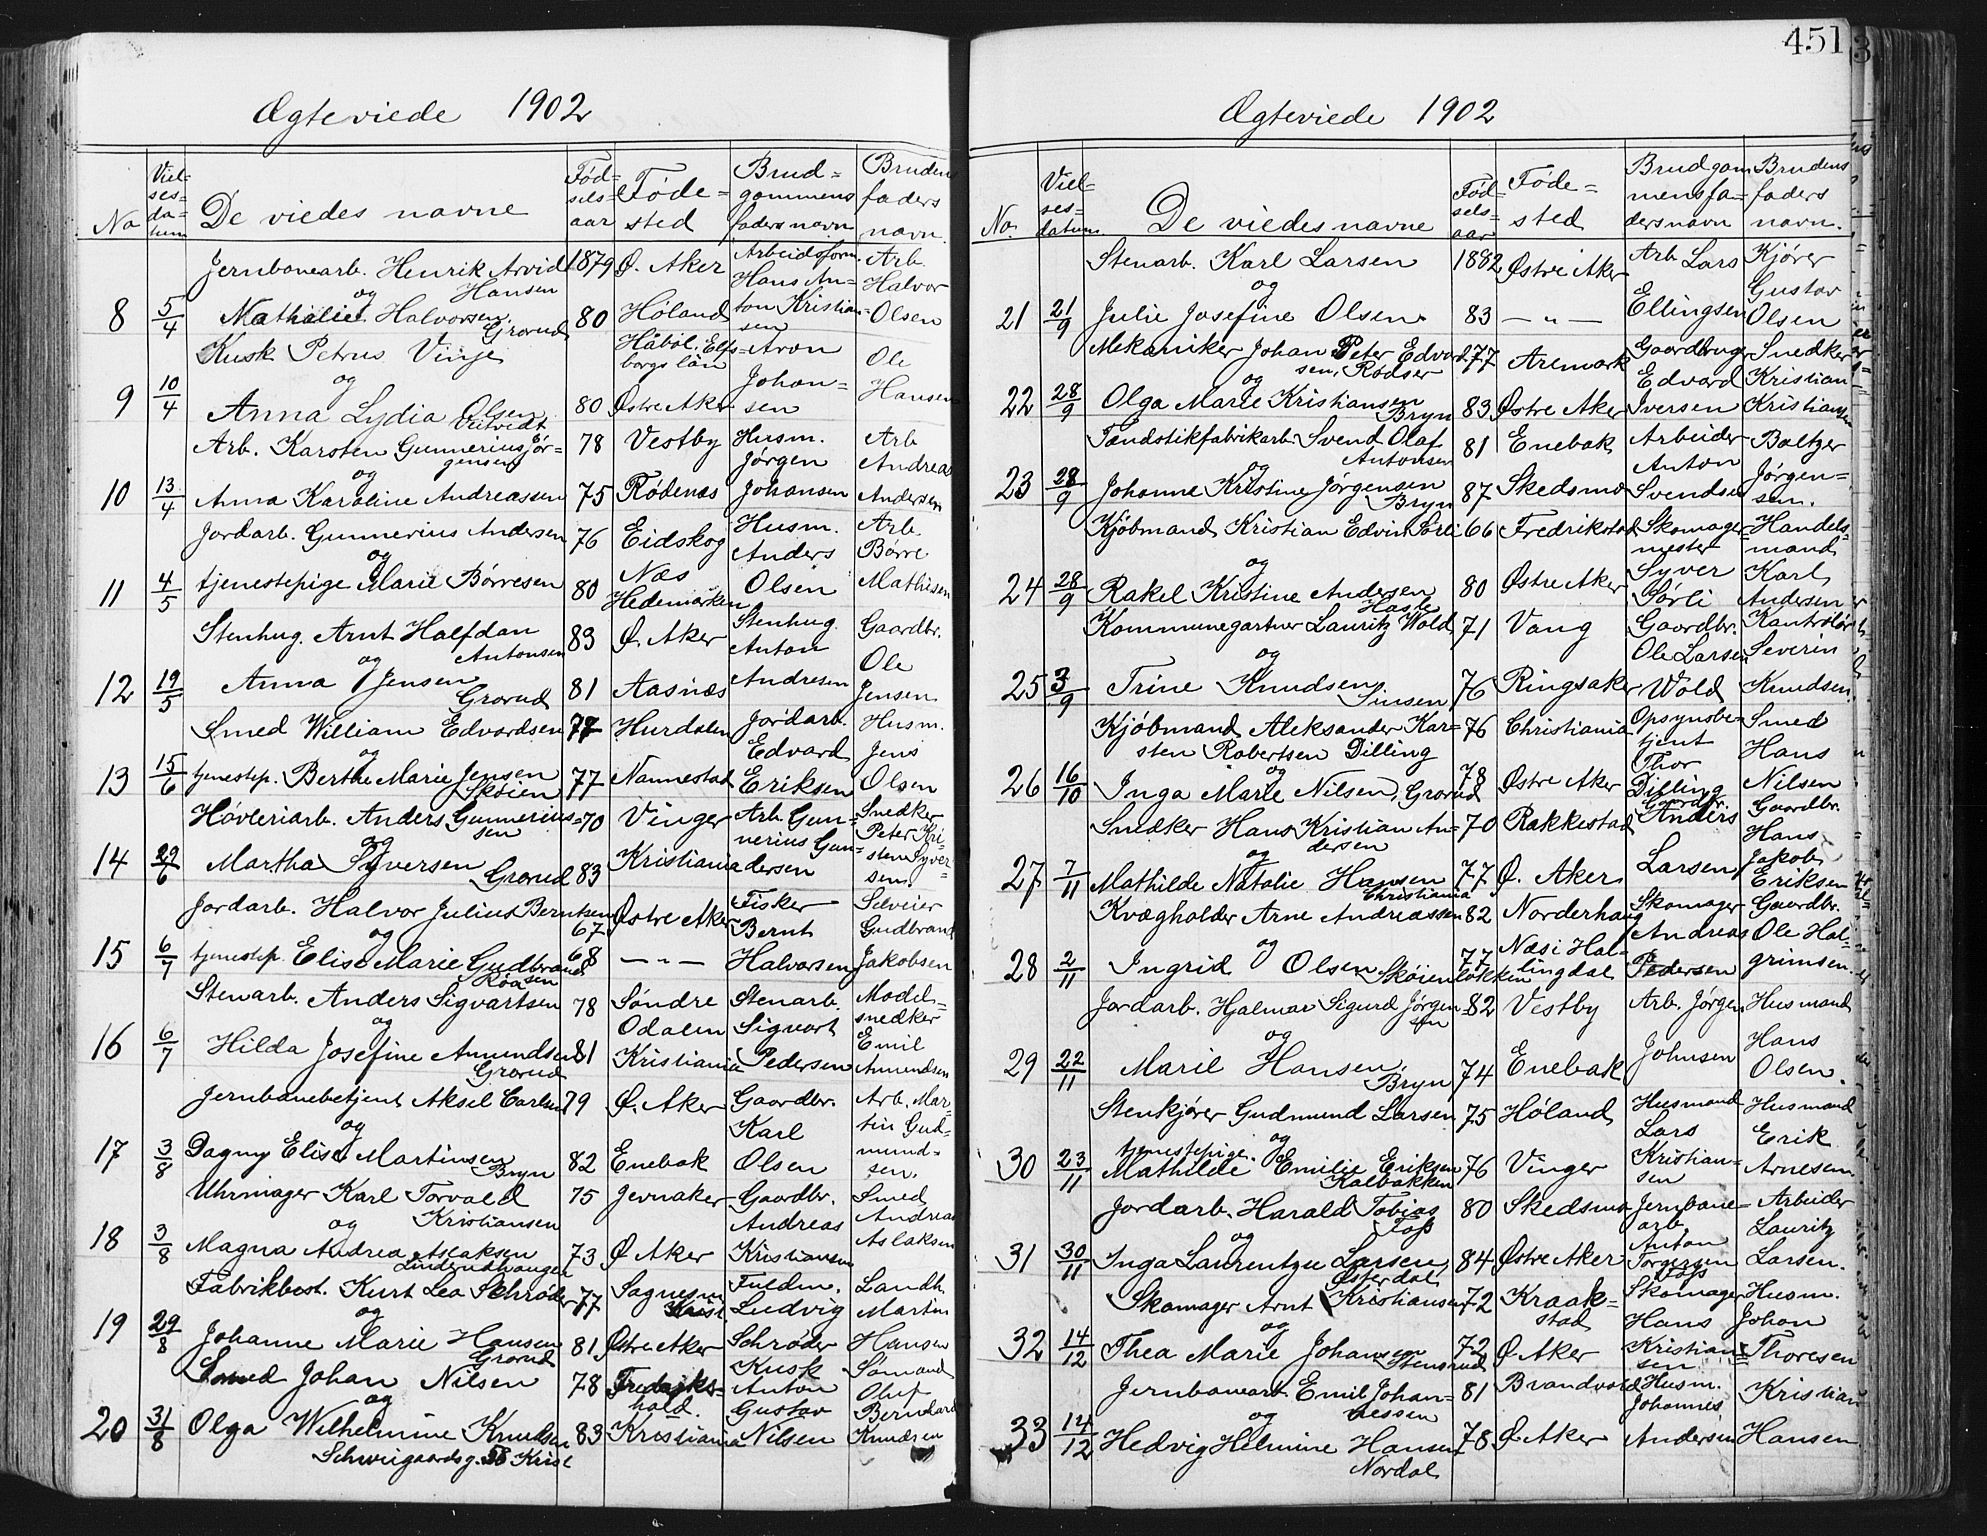 451
Ægteviede 1902
No
Viel-
ses-
da-
tum
De viedes navne
Fød-
sels-
aar
Føde-
sted
Brud-
gommens
faders navn
Brudens
faders
navn.
Jernbanearb. Henrik Arvid Hansen 1879 Ø. Aker Arbeidsform. Hans An- Arb. Halvor
og
8 5/4 Mathilie Halvorsen Grorud 80 Høland ton Kristian- sen Olsen
Kusk Petrus Vinje Håbol, Elfs- borgs län Aron Ole
og
9 10/4 Anna Lydia Olsen Veitvedt 80 Østre Aker Johan- sen Hansen
Arb. Karsten Gunnerius Jør- gensen 78 Vestby Husm. Jørgen Arb Andreas
og
10 13/4 Anna Karoline Andreassen 75 Rødenæs Johansen Andersen
Jordarb. Gunnerius Andersen 76 Eidskog Husm. Anders Arb. Børre
og
11 4/5 tjenestepige Marie Børresen 80 Næs Hedemarken Olsen Mathisen
Stenhug. Arnt Halfdan Antonsen 83 Ø. Aker Stenhug. Anton Gaardbr. Ole
og
12 19/5 Anna Jensen Grorud 81 Aasnæs Andresen Jensen
Smed William Edvardsen 77 Hurdalen Jordarb. Edvard Husm. Jens
og
13 15/6 tjenestep. Berthe Marie Jensen Skøien 77 Nannestad Eriksen Olsen
Høvleriarb. Anders Gunnerius- sen 70 Vinger Arb. Gun- nerius Gun- Snedker Peter Kri-
og
14 29/6 Martha Syversen Grorud 83 Kristiania dersen sten Syver- sen.
Jordarb. Halvor Julius Berntsen 67 Østre Aker Fisker Bernt Selveier Gudbrand
og
15 6/7 tjenestep. Elise Marie Gudbrand sen Roa 68 — „ — Halvorsen Jakobsen
Stenarb. Anders Sigvartsen 78 Søndre Odalen Stenarb. Sigvart Model- snedker
og
16 6/7 Hilda Josefine Amundsen Grorud 81 Kristiania Pedersen Emil Amundsen
Jernbanebetjent Aksel Carlsen 79 Ø. Aker Gaardbr. Karl Arb. Mar- tin Gud-
og
17 3/8 Dagny Elise Martinsen Bryn 82 Enebak Olsen mund- sen.
Uhrmager Karl Torvald Kristiansen 75 Jevnaker Gaardbr. Andreas Smed Andreas
og
18 3/8 Magna Andrea Aslaksen 73 Ø Aker Kristiansen Aslaksen
Fabrikbest. Kurt Leo Schrøder 77 Sagnesin Krist. Fuldm. Ludvig Landh. Martin
og
19 29/8 Johanne Marie Hansen Grorud 81 Østre Aker Schrøder Hansen
Smed Johan Nilsen 78 Fredriks- hald. Kusk Anton Gustav Sømand Oluf Berndard
og
20 31/8 Olga Wilhelmine Knudsen 83 Kristiania Nilsen Knudsen
Schweigaardsg. 58 Krist
Ægteviede 1902
No.
Viel-
ses-
datum
De viedes navne
Fød-
sels-
aar
Føde-
sted
Brudgom
mens fa-
ders navn
Brudens
faders
navn.
Stenarb. Karl Larsen 1882 Østre Aker Arb Lars Kjører Gustav
og
21 21/9 Julie Josefine Olsen. 83 — „ — Ellingsen Olsen
Mekaniker Johan Peter Edvard- sen, Rødser 77 Aremark Gaardbruger Edvard Snedker Kristian
og
22 28/9 Olga Marie Kristiansen Bryn 83 Østre Aker Iversen Kristiansen
Tændstikfabrikarb. Svend Olaf Antonsen 81 Enebak Arbeider Anton Baltzer
og
23 28/9 Johanne Kristine Jørgensen Bryn 87 Skedsmo Svendsen Jørgen- sen.
Kjøbmand Kristian Edvin Sørli 66 Fredrikstad Skomager- mester Handels- mand
og
24 28/9 Rakel Kristine Andersen Hasle 80 Østre Aker Syver Sørli Karl Andersen
Kommunegartner Lauritz Wold 71 Vang Gaardbr. Ole Larsen Kontrolør Severin
og
25 3/9 Trine Knudsen Sinsen 76 Ringsaker Wold Knudsen.
Kjøbmand Aleksander Kar- sten Robertsen Dilling 76 Christiania Opsynsbe- tjent Thor Smed Hans
og
26 16/10 Inga Marie Nilsen, Grorud 78 Østre Aker Dilling Nilsen
Snedker Hans Kristian An- dersen 70 Rakkestad Gaardbr. Anders Gaardbr. Hans
og
27 7/11 Mathilde Natalie Hansen Christiania 77 Ø. Aker Larsen Jakob Eriksen
Kvægholder Arne Andreassen 82 Norderhaug Skomager Andreas Gaardbr. Ole Hal-
og
28 2/11 Ingrid Olsen Skøienløkken 77 Næs i Hal- lingdal Pedersen grimsen.
Jordarb. Hjalmar Sigurd Jørgen sen 82 Vestby Arb. Jørgen Husmand Hans
og
29 22/11 Marie Hansen, Bryn 74 Enebak Johnsen Olsen.
Stenkjører Gudmund Larsen 75 Høland Husmand Lars Husmand Erik
og
30 23/11 tjenestepige. Mathilde Emilie Eriksen Kalbakken 76 Vinger Kristian- sen Arnesen
Jordarb. Harald Tobias Foss 80 Skedsmo Jernbane- arb. Anton Arbeider Lauritz
og
31 30/11 Inga Laurentze Larsen Østerdal 84 Østre Aker Torgersen Foss Larsen.
Skomager Arnt Kristiansen 72 Kraak- stad Skomager Hans Husm. Johan
og
32 14/12 Thea Marie Johansen Stensrud 72 Ø Aker Kristian- sen Thoresen
Jernbanearb Emil Johan- nessen 81 Brandvold Husm. Johannes Kristian
og
33 14/12 Hedvig Helmine Hansen Nordal 78 Ø. Aker Andersen Hansen